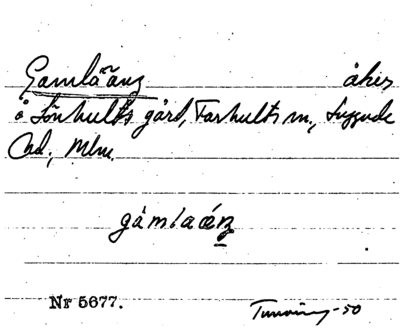 Gamlaäng åker
å Sönhults gård, Farhults sn., Luggude
hd., Mlm.
gámlaǽŋ
Nr 5677.
-50